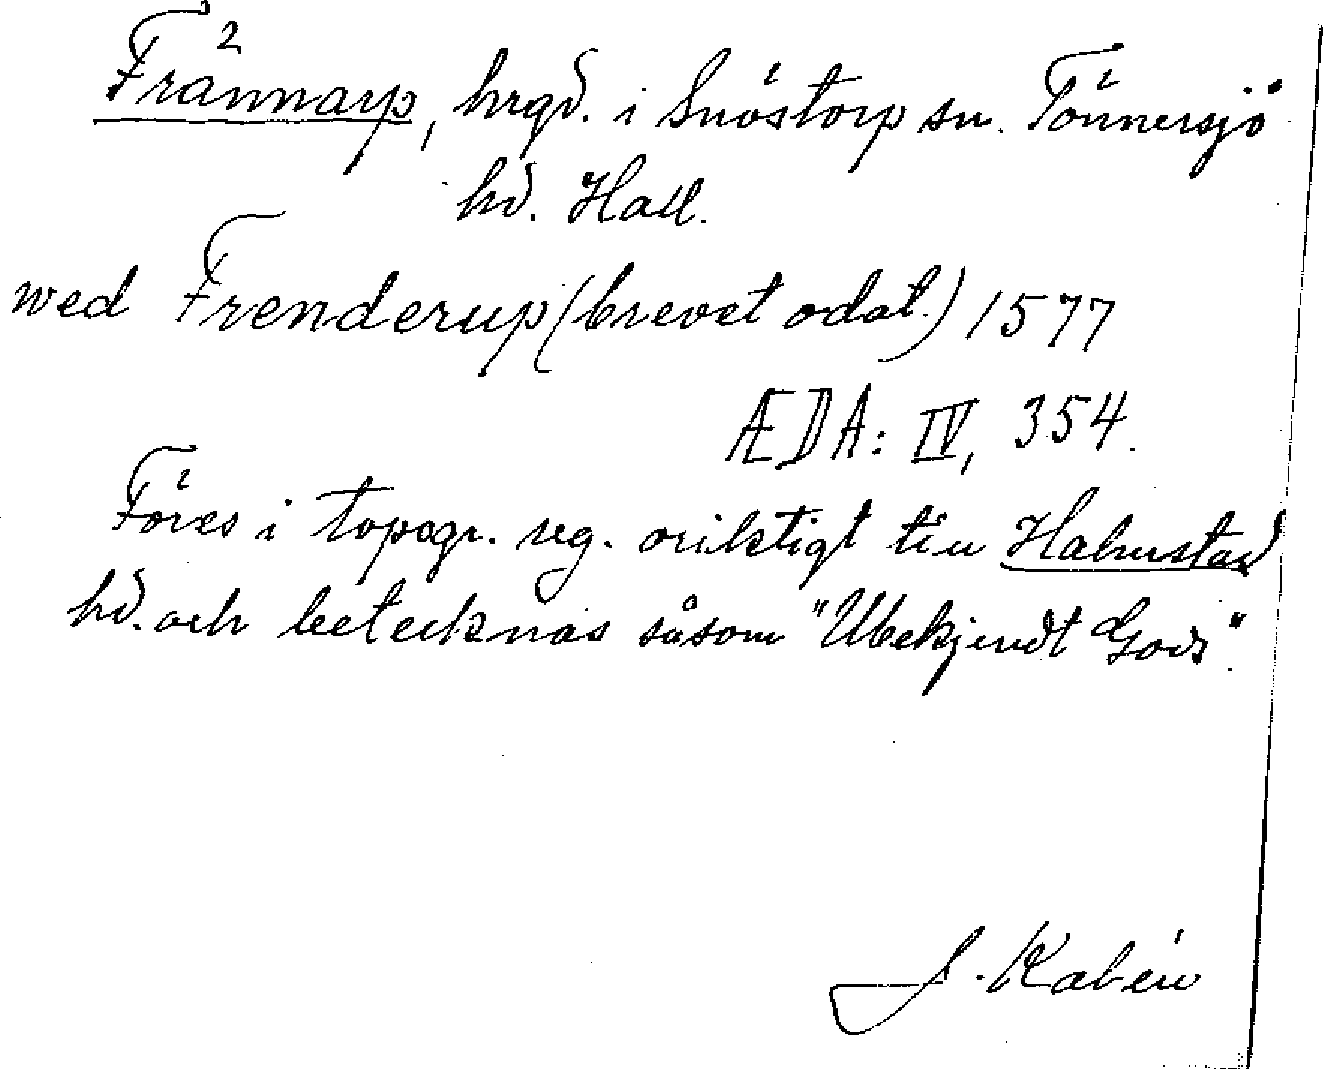 Frännarp, hrgd. i Snöstorp sn. Tönnersjö
hd. Hall.
wed Frenderup (brevet odat.) 1577
ÆDA: IV, 354.
Föres i topogr. reg. oriktigt till Halmstad
hd. och betecknas såsom "Ubekjendt Gods".
J. Kalén